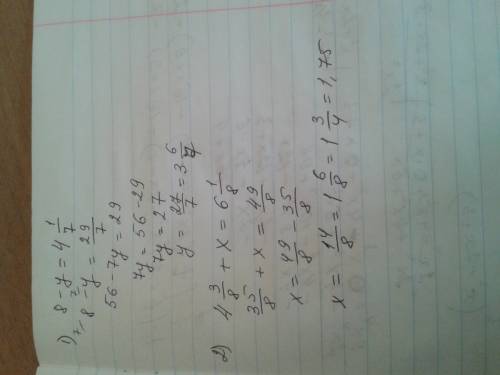 1) 8 - y = 4 1/7
7/ 8 - y = 29/7
56 - 7y = 29
7y = 56 - 29
7y = 27
y = 27/7 = 3 6/7
2) 4 3/8 + x = 6 1/8
35/8 + x = 49/8
x = 49/8 - 35/8
x = 14/8 = 1 6/8 = 1 3/4 = 1,75